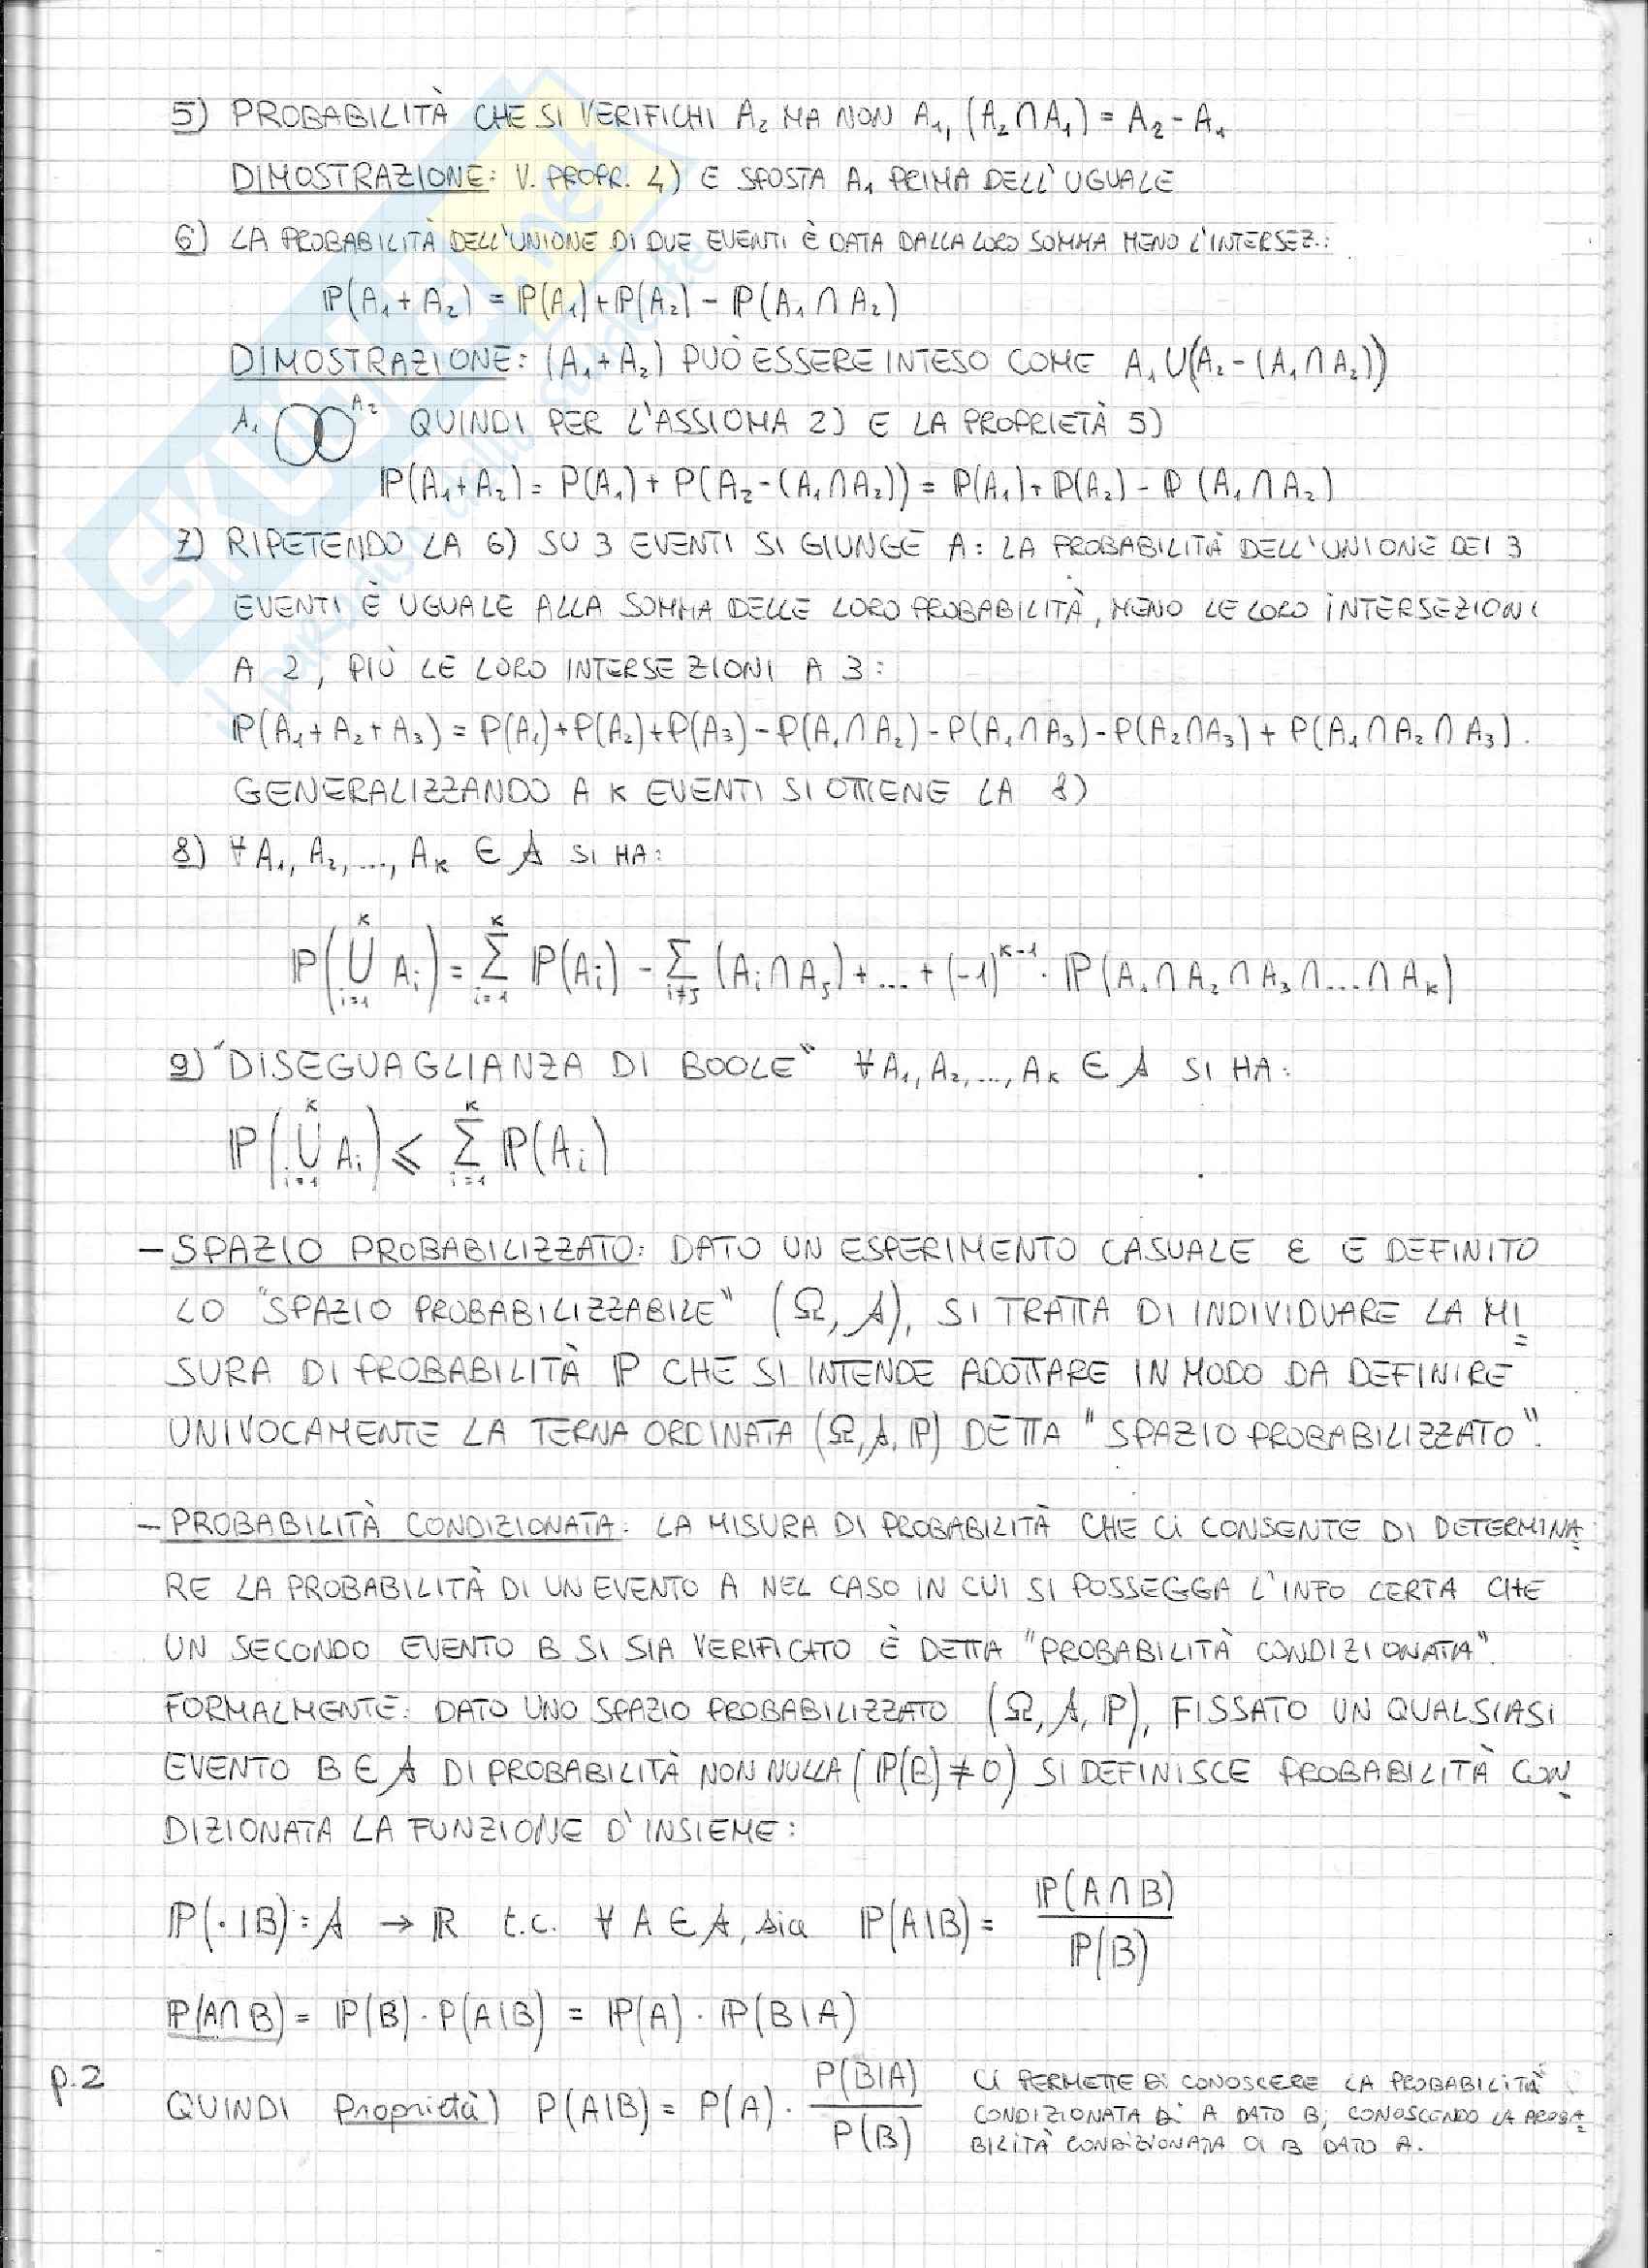 5) PROBABILITÀ CHE SI VERIFICHI A₂ MA NON A₁, (A₂∩A₁) = A₂ - A₁
DIMOSTRAZIONE: V. PROPR. 4) E SPOSTA A₁ PRIMA DELL'UGUALE
6) LA PROBABILITÀ DELL'UNIONE DI DUE EVENTI È DATA DALLA LORO SOMMA MENO L'INTERSEZ.:
ℙ(A₁+A₂) = ℙ(A₁)+ℙ(A₂) - ℙ(A₁∩A₂)
DIMOSTRAZIONE: (A₁+A₂) PUÒ ESSERE INTESO COME A₁∪(A₂-(A₁∩A₂))
A₁ A₂ QUINDI PER L'ASSIOMA 2) E LA PROPRIETÀ 5)
ℙ(A₁+A₂) = P(A₁) + P(A₂-(A₁∩A₂)) = ℙ(A₁)+ℙ(A₂) - ℙ(A₁∩A₂)
7) RIPETENDO LA 6) SU 3 EVENTI SI GIUNGE A: LA PROBABILITÀ DELL'UNIONE DEI 3
EVENTI È UGUALE ALLA SOMMA DELLE LORO PROBABILITÀ, MENO LE LORO INTERSEZIONI
A 2, PIÙ LE LORO INTERSEZIONI A 3:
ℙ(A₁+A₂+A₃) = P(A₁)+P(A₂)+P(A₃) - P(A₁∩A₂) - P(A₁∩A₃) - P(A₂∩A₃) + P(A₁∩A₂∩A₃).
GENERALIZZANDO A K EVENTI SI OTTIENE LA 8)
8) ∀ A₁, A₂, ..., Aₖ ∈ 𝒜 SI HA:
ℙ(⋃ᵢ₌₁ᴷ Aᵢ) = Σᵢ₌₁ᴷ ℙ(Aᵢ) - Σᵢ≠ⱼ (Aᵢ∩Aⱼ) + ... + (-1)ᴷ⁻¹ · ℙ(A₁∩A₂∩A₃∩...∩Aₖ)
9) "DISEGUAGLIANZA DI BOOLE" ∀ A₁, A₂, ..., Aₖ ∈ 𝒜 SI HA:
ℙ(⋃ᵢ₌₁ᴷ Aᵢ) ⩽ Σᵢ₌₁ᴷ ℙ(Aᵢ)
- SPAZIO PROBABILIZZATO: DATO UN ESPERIMENTO CASUALE ε E DEFINITO
LO "SPAZIO PROBABILIZZABILE" (Ω, 𝒜), SI TRATTA DI INDIVIDUARE LA MI
SURA DI PROBABILITÀ ℙ CHE SI INTENDE ADOTTARE IN MODO DA DEFINIRE
UNIVOCAMENTE LA TERNA ORDINATA (Ω, 𝒜, ℙ) DETTA "SPAZIO PROBABILIZZATO".
- PROBABILITÀ CONDIZIONATA: LA MISURA DI PROBABILITÀ CHE CI CONSENTE DI DETERMINA
RE LA PROBABILITÀ DI UN EVENTO A NEL CASO IN CUI SI POSSEGGA L'INFO CERTA CHE
UN SECONDO EVENTO B SI SIA VERIFICATO È DETTA "PROBABILITÀ CONDIZIONATA".
FORMALMENTE: DATO UNO SPAZIO PROBABILIZZATO (Ω, 𝒜, ℙ), FISSATO UN QUALSIASI
EVENTO B ∈ 𝒜 DI PROBABILITÀ NON NULLA (ℙ(B) ≠ 0) SI DEFINISCE PROBABILITÀ CON
DIZIONATA LA FUNZIONE D'INSIEME:
ℙ(·|B): 𝒜 → ℝ t.c. ∀ A ∈ 𝒜, sia ℙ(A|B) = ℙ(A∩B) / ℙ(B)
ℙ(A∩B) = ℙ(B) · P(A|B) = ℙ(A) · ℙ(B|A)
p.2
QUINDI Proprietà) P(A|B) = P(A) · P(B|A) / P(B)
CI PERMETTE DI CONOSCERE LA PROBABILITÀ
CONDIZIONATA DI A DATO B, CONOSCENDO LA PROBA
BILITÀ CONDIZIONATA DI B DATO A.